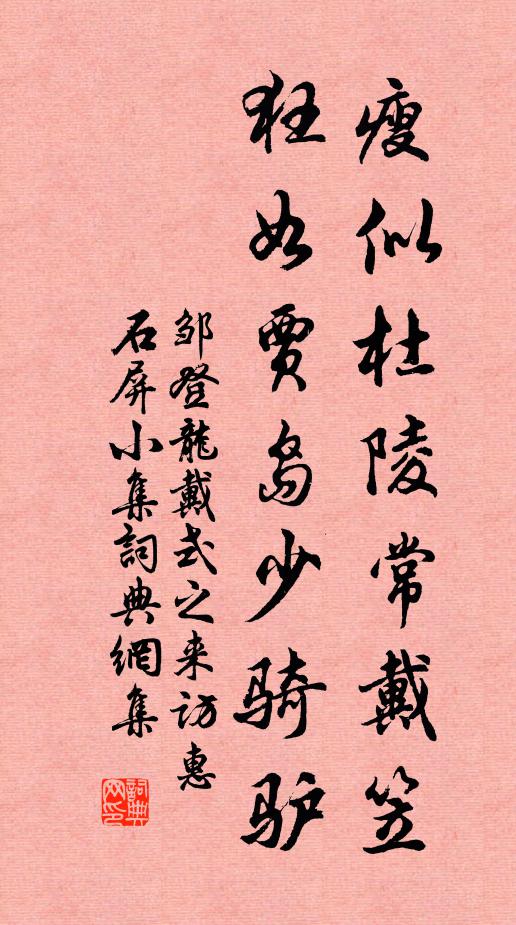 瘦似杜陵常戴笠
狂如贾岛少骑驴
邹登龍戴式之来访惠
石屏小集詞典網集
詞典网印